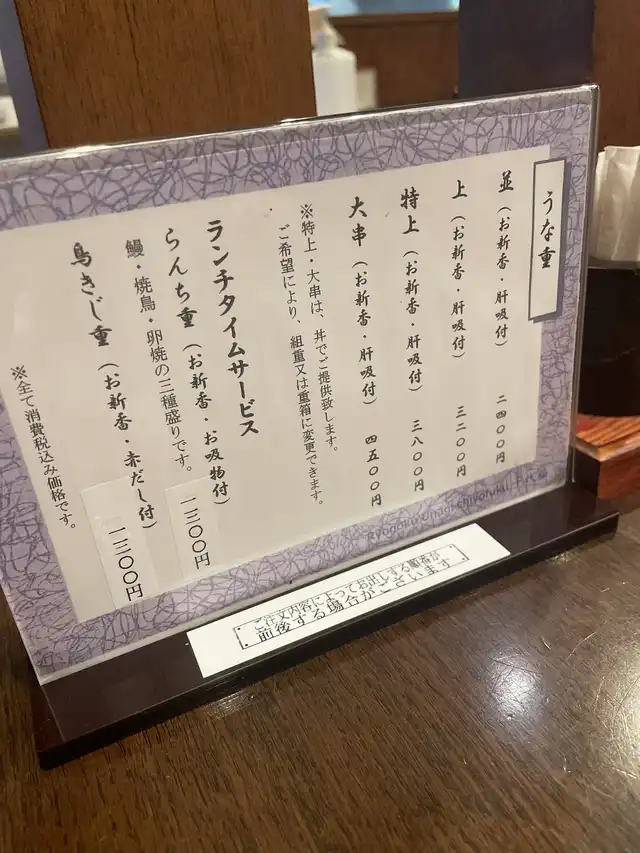 うな重
並（お新香・肝吸付） 二四〇〇円
上（お新香・肝吸付） 三二〇〇円
特上（お新香・肝吸付） 三八〇〇円
大串（お新香・肝吸付） 四五〇〇円
※特上・大串は、丼でご提供致します。
ご希望により、組重又は重箱に変更できます。
ランチタイムサービス
らんち重（お新香・お吸物付） 一三〇〇円
鰻・焼鳥・卵焼の三種盛りです。
鳥きじ重（お新香・赤だし付） 一三〇〇円
※全て消費税込み価格です。
Ryogoku Unagi
ご注文内容によってお出しする順番が
前後する場合がございます